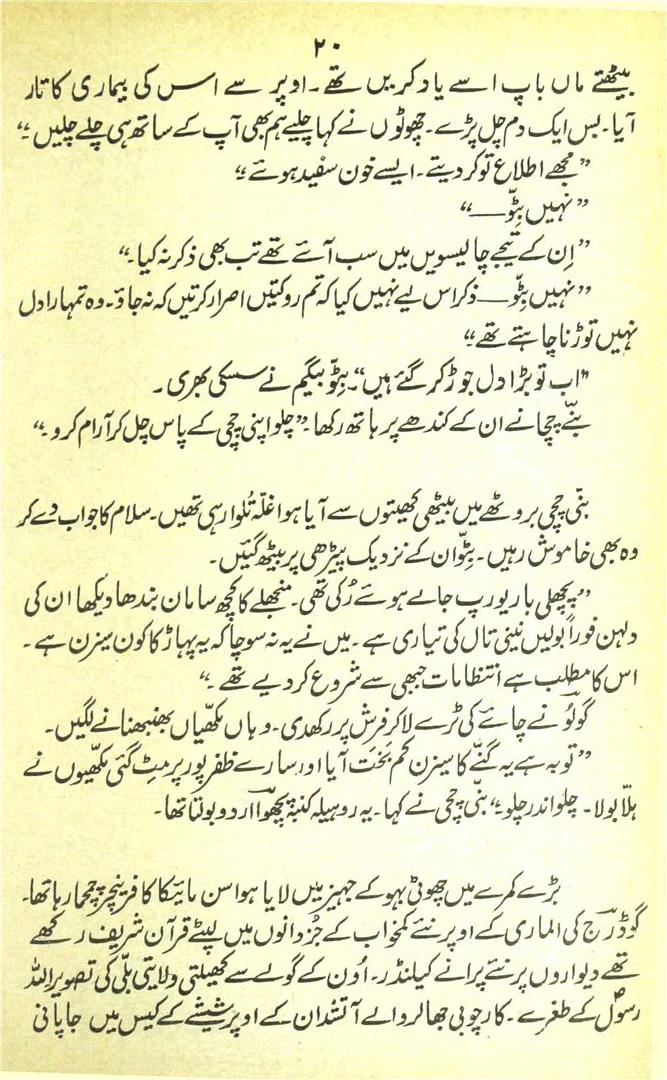 ۲۰
بیٹھتے ماں باپ اسے یاد کریں تھے۔ اوپر سے اس کی بیماری کا تار
آیا۔ بس ایک دم چل پڑے۔ چھوٹوں نے کہا چلیے ہم بھی آپ کے ساتھ ہی چلے چلیں۔“
”مجھے اطلاع تو کر دیتے۔ ایسے خون سفید ہوئے۔“
”نہیں بِٹّو——“
”اِن کے تیجے چالیسویں میں سب آئے تھے تب بھی ذکر نہ کیا۔“
”نہیں بِٹّو—— ذکر اس لیے نہیں کیا کہ تم روکتیں اصرار کرتیں کہ نہ جاؤ۔ وہ تمہارا دل
نہیں توڑنا چاہتے تھے۔“
”اب تو بڑا دل جوڑ کر گئے ہیں“۔ بِٹّو بیگم نے سسکی بھری۔
بنّے چچا نے ان کے کندھے پر ہاتھ رکھا۔ ”چلو اپنی چچی کے پاس چل کر آرام کرو۔“
بنّی چچی بروٹھے میں بیٹھی کھیتوں سے آیا ہوا غلّہ تُلوا رہی تھیں۔ سلام کا جواب دے کر
وہ بھی خاموش رہیں۔ بِٹّو ان کے نزدیک پیڑھی پر بیٹھ گئیں۔
”پچھلی بار یورپ جاتے ہوئے رُکی تھی۔ منجھلے کا کچھ سامان بندھا دیکھا ان کی
دلہن فوراً بولیں نینی تال کی تیاری ہے۔ میں نے یہ نہ سوچا کہ یہ پہاڑ کا کون سیزن ہے۔
اس کا مطلب ہے انتظامات جبھی سے شروع کر دیے تھے۔“
گولو نے چائے کی ٹرے لا کر فرش پر رکھ دی۔ وہاں مکھّیاں بھنبھنانے لگیں۔
”توبہ ہے یہ گنّے کا سیزن کم بَخَت آیا اور سارے ظفر پور پر مِٹ گئی مکھّیوں نے
ہلّا بولا۔ چلو اندر چلو۔“ بنّی چچی نے کہا۔ یہ روہیلہ کنبہ پچھوا اردو بولتا تھا۔
بڑے کمرے میں چھوٹی بہو کے جہیز میں لایا ہوا سن مائیکا کا فرنیچر چمچما رہا تھا۔
گوڈرج کی الماری کے اوپر نئے کمخواب کے جُزدانوں میں لپٹے قرآن شریف رکھے
تھے دیواروں پر نئے پرانے کیلنڈر۔ اُون کے گولے سے کھیلتی ولایتی بلّی کی تصویر اللہ
رسولؐ کے طغرے۔ کارچوبی جھالر والے آتشدان کے اوپر شیشے کے کیس میں جاپانی